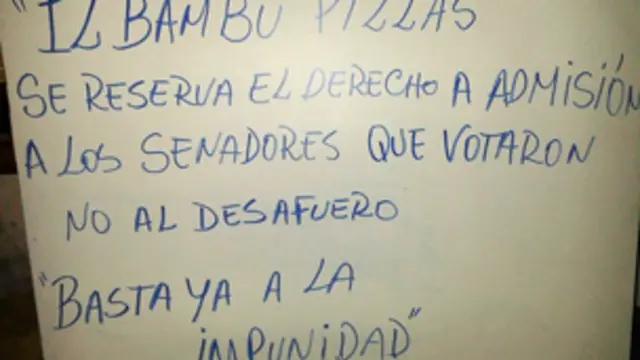 "IL BAMBU PIZZAS
SE RESERVA EL DERECHO A ADMISIÓN
A LOS SENADORES QUE VOTARON
NO AL DESAFUERO
"BASTA YA A LA
IMPUNIDAD"